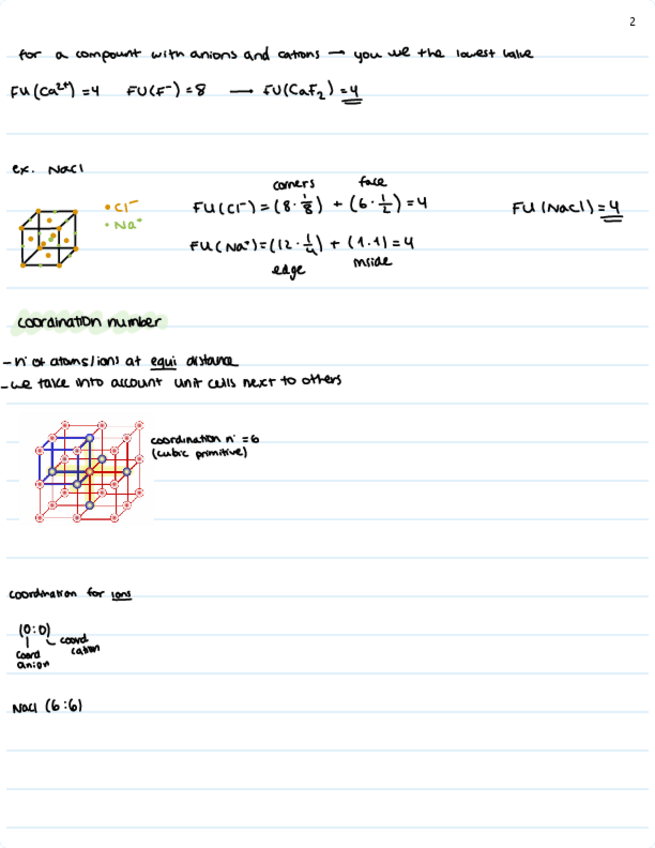 2
for a compount with anions and cations → you use the lowest value
FU(Ca²⁺) = 4 FU(F⁻) = 8 → FU(CaF₂) = 4
ex. NaCl
corners face
• Cl⁻ FU(Cl⁻) = (8 · 1/8) + (6 · 1/2) = 4 FU (NaCl) = 4
• Na⁺
FU(Na⁺) = (12 · 1/4) + (1 · 1) = 4
edge inside
coordination number
- n° of atoms/ions at equi distance
- we take into account unit cells next to others
coordination n° = 6
(cubic primitive)
coordination for ions
(0:0)
coord anion
coord cation
NaCl (6:6)